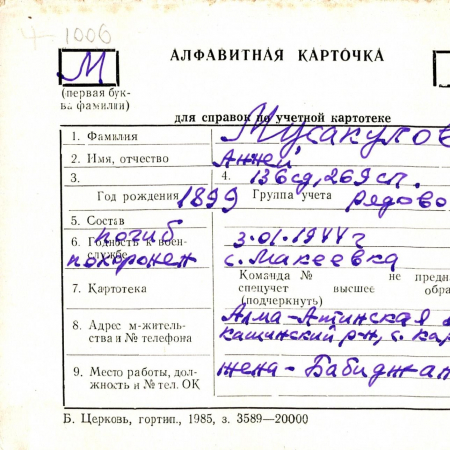 4-1006
АЛФАВИТНАЯ КАРТОЧКА
М
(первая бук-
ва фамилии)
для справок по учетной картотеке
1. Фамилия Мусакулов
2. Имя, отчество Анжей
3. 4. 136сд, 269сп.
Год рождения 1899 Группа учета рядово
5. Состав погиб
6. Годность к воен-
службе 3.01.1944г
похоронен с. Макеевка
7. Картотека Команда № не предн
спецучет высшее обра
(подчеркнуть)
8. Адрес м-житель-
ства и № телефона Алма-Атинская
кашинский р-н, с. кар
9. Место работы, дол-
жность и № тел. ОК жена - Бабиджан
Б. Церковь, гортип., 1985, з. 3589—20000